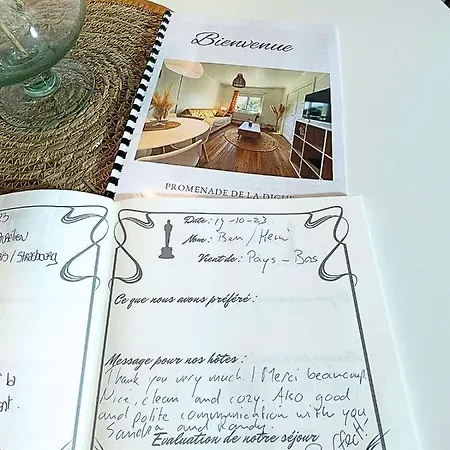 Bienvenue
PROMENADE DE LA DIGUE
Strasbourg
Date: 19-10-23
Nom: Ben/
Vient de: Pays-Bas
Ce que nous avons préféré:
Message pour nos hôtes:
Thank you very much! Merci beaucoup
Nice, clean and cozy. Also good
and polite communication with you
Sandra and Randy.
Evaluation de notre séjour